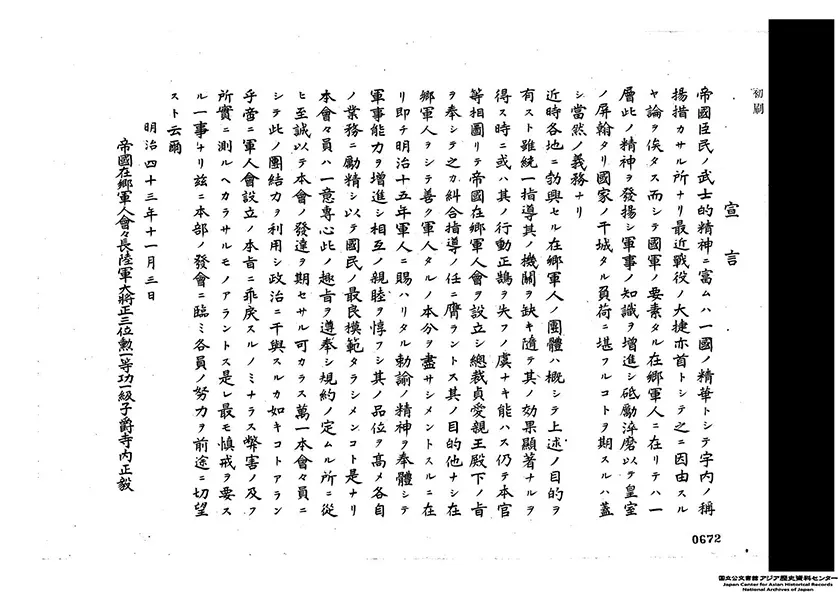 初刷
宣言
帝國臣民ノ武士的精神ニ富ムハ一國ノ精華トシテ宇内ノ稱
揚措カサル所ナリ最近戰役ノ大捷亦首トシテ之ニ因由スル
ヤ論ヲ俟タス而シテ國軍ノ要素タル在鄉軍人ニ在リテハ一
層此ノ精神ヲ發揚シ軍事ノ知識ヲ增進シ砥勵淬磨以テ皇室
ノ屏翰タリ國家ノ干城タル負荷ニ堪フルコトヲ期スルハ蓋
シ當然ノ義務ナリ
近時各地ニ勃興セル在鄉軍人ノ團體ハ概シテ上述ノ目的ヲ
有スト雖統一指導其ノ機關ヲ缺キ隨テ其ノ効果顯著ナルヲ
得ス時ニ或ハ其ノ行動正鵠ヲ失フノ虞ナキ能ハス仍テ本官
等相圖リテ帝國在鄉軍人會ヲ設立シ總裁貞愛親王殿下ノ旨
ヲ奉シテ之カ糾合指導ノ任ニ膺ラントス其ノ目的他ナシ在
鄉軍人ヲシテ善ク軍人タルノ本分ヲ盡サシメントスルニ在
リ即チ明治十五年軍人ニ賜ハリタル勅諭ノ精神ヲ奉體シテ
軍事能力ヲ增進シ相互ノ親睦ヲ惇フシ其ノ品位ヲ高メ各自
ノ業務ニ勵精シ以テ國民ノ最良模範タラシメンコト是ナリ
本會々員ハ一意專心此ノ趣旨ヲ遵奉シ規約ノ定ムル所ニ從
ヒ至誠以テ本會ノ發達ヲ期セサル可カラス萬一本會々員ニ
シテ此ノ團結力ヲ利用シ政治ニ干與スルカ如キコトアラン
乎啻ニ軍人會設立ノ本旨ニ乖戾スルノミナラス弊害ノ及フ
所實ニ測ルヘカラサルモノアラントス是レ最モ愼戒ヲ要ス
ル一事ナリ玆ニ本部ノ發會ニ臨ミ各員ノ努力ヲ前途ニ切望
スト云爾
明治四十三年十一月三日
帝國在鄉軍人會々長陸軍大將正三位勲一等功一級子爵寺内正毅
0672
国立公文書館 アジア歴史資料センター
Japan Center for Asian Historical Records
National Archives of Japan